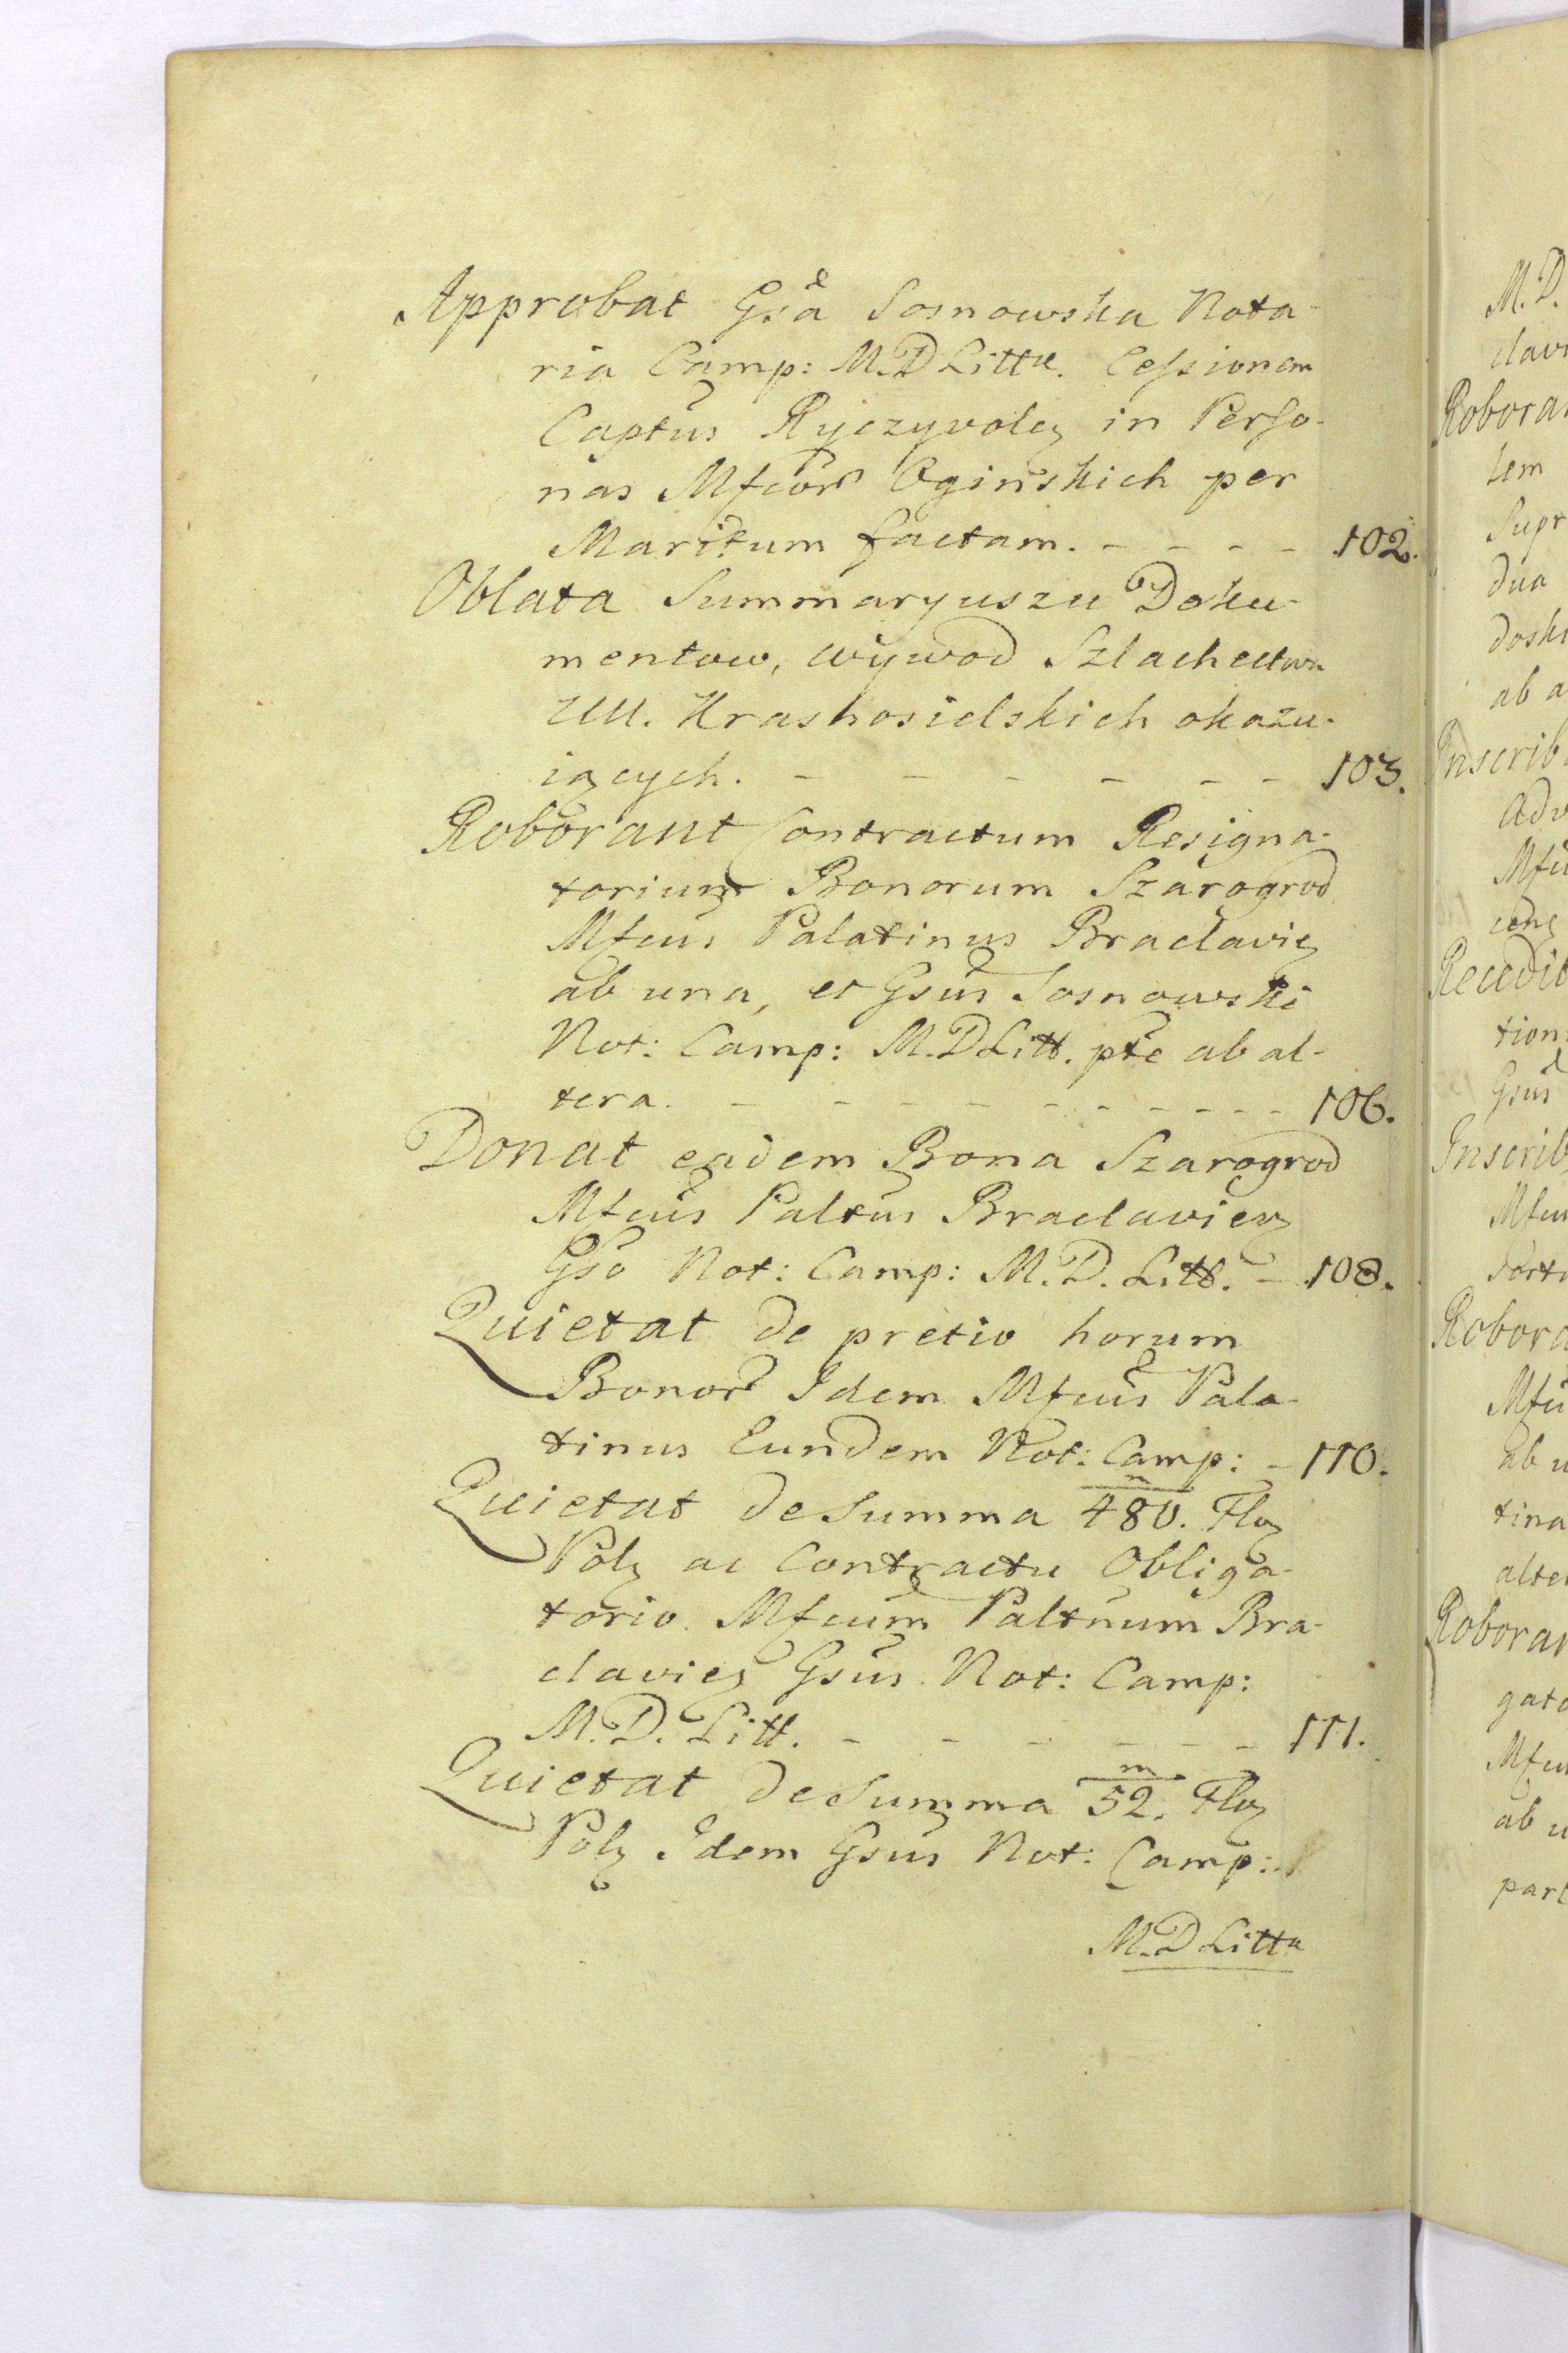 Approbat Gsa Sosnowska Nota-
ria Camp: M.D Littu. Cessionem
Captus Ryczyvoleȝ in Perso-
nas Mfcor Oginskich per
Maritum factam. - - - - 102.
Oblata Summaryuszu Doku-
mentow, wywod Szlachectwa
UU. Kraskosielskich okazu-
iących. - - - - - - 103.
Roborant Contractum Resigna-
torium Bonorum Szarogrod
Mfcus Palatinus Braclavieȝ
ab una, et Gsus Sosnowski
Not: Camp: M.D Litt. pte ab al-
tera. - - - - - - - - - - 106.
Donat eadem Bona Szarogrod
Mfcus Paltus Braclavieȝ
Gso Not: Camp: M.D. Litt. - 108.
Quietat de pretio horum
Bonor Idem Mfcus Pala-
tinus Eundem Not: Camp: - 110.
Quietat de Summa 480.m Floȝ
Polȝ ac Contractu Obliga-
torio. Mfcum Paltnum Bra-
clavieȝ Gsus Not: Camp:
M.D. Litt. - - - - - - 111.
Quietat de Summa 52.m Floȝ
Polȝ Idem Gsus Not: Camp:
M.D Littu
M.D.
Roboran
lem
Supr
dua
ab a
Inscrib
Adv
Recedit
tion
Gsus
Inscrib
Mfcu
Robora
Mfcu
ab u
tina
alter
Roboran
gato
Mfcu
ab u
part